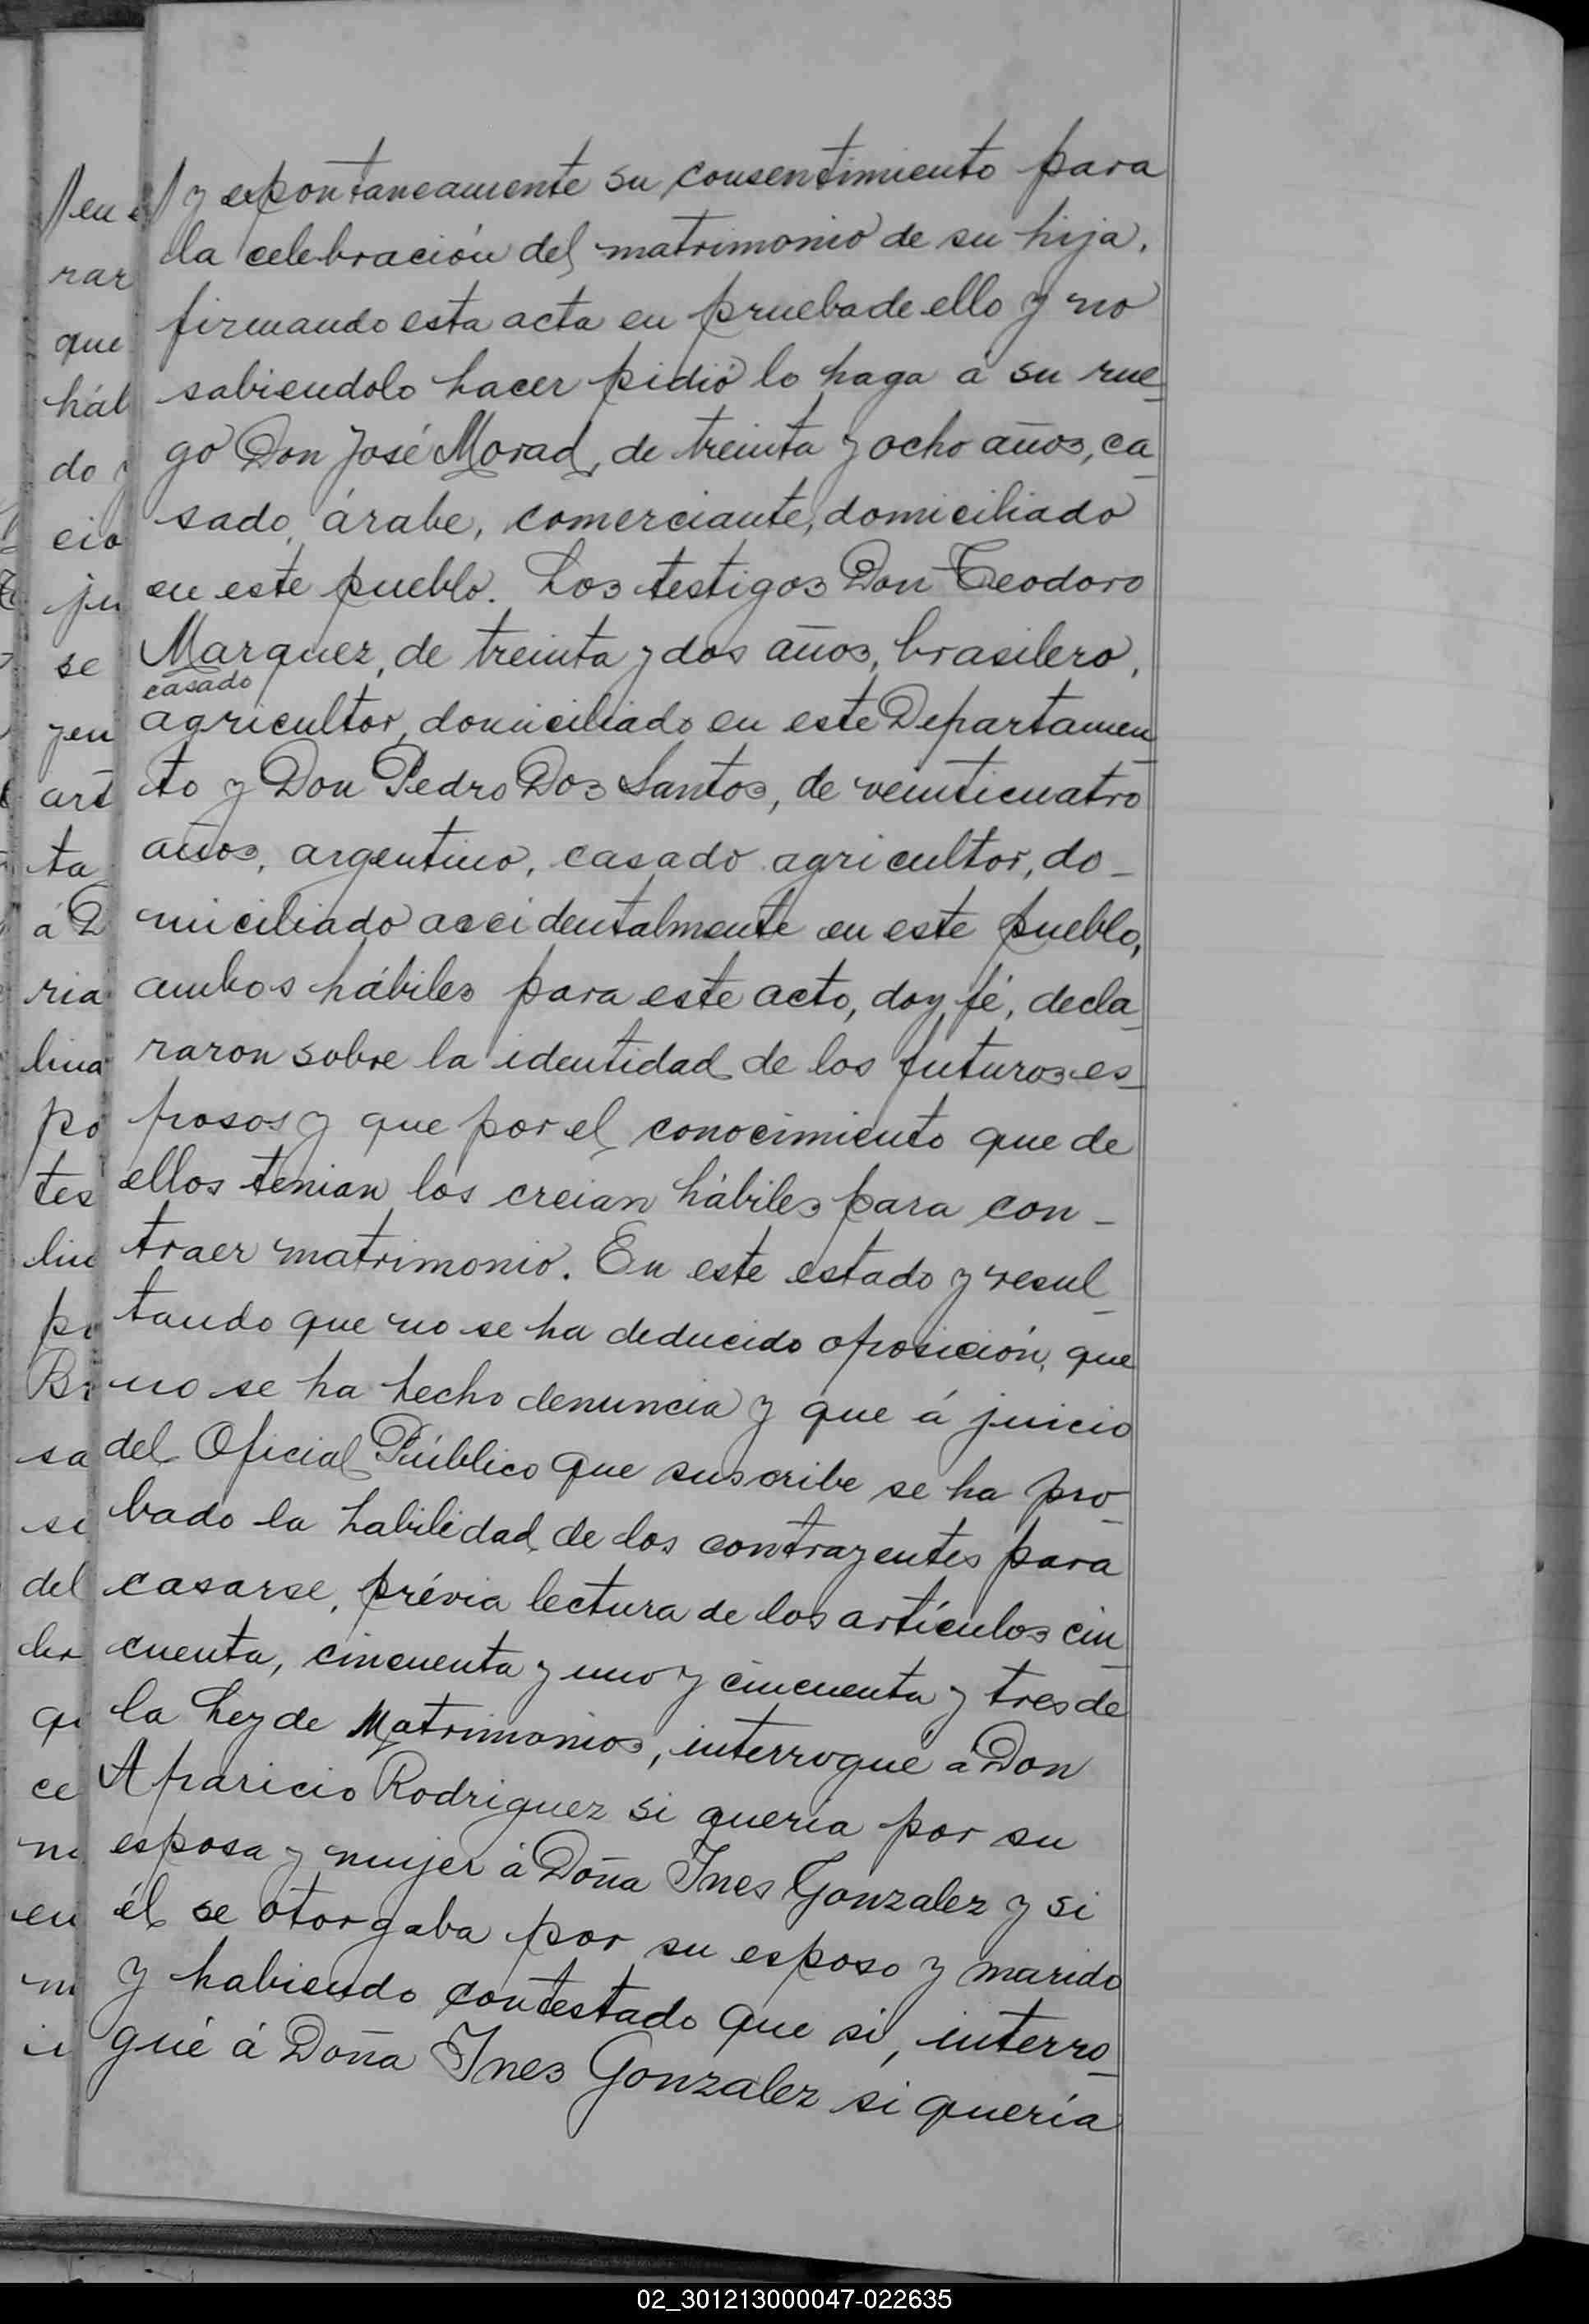 y espontaneamente su consentimiento para
la celebración del matrimonio de su hija,
firmando esta acta en prueba de ello y no
sabiendolo hacer pidió lo haga á su rue_
go Don José Morad, de treinta y ocho años, ca_
sado, árabe, comerciante, domiciliado
en este pueblo. Los testigos Don Teodoro
Marquez, de treinta y dos años, brasilero,
casado
agricultor, domiciliado en este Departamen_
to y Don Pedro Dos Santos, de veinticuatro
años, argentino, casado agricultor, do_
miciliado accidentalmente en este pueblo,
ambos hábiles para este acto, doy fé, decla_
raron sobre la identidad de los futuros es_
posos y que por el conocimiento que de
ellos tenian los creian hábiles para con_
traer matrimonio. En este estado y resul_
tando que no se ha deducido oposición, que
no se ha hecho denuncia y que á juicio
del Oficial Público que suscribe se ha pro_
bado la habilidad de los contrayentes para
casarse, prévia lectura de los artículos cin_
cuenta, cincuenta y uno y cincuenta y tres de
la Ley de Matrimonios, interrogué a Don
Aparicio Rodriguez si quería por su
esposa y mujer á Doña Ines Gonzalez y si
él se otorgaba por su esposo y marido
y habiendo contestado que si, interro_
gué á Doña Ines Gonzalez si quería
02_301213000047-022635